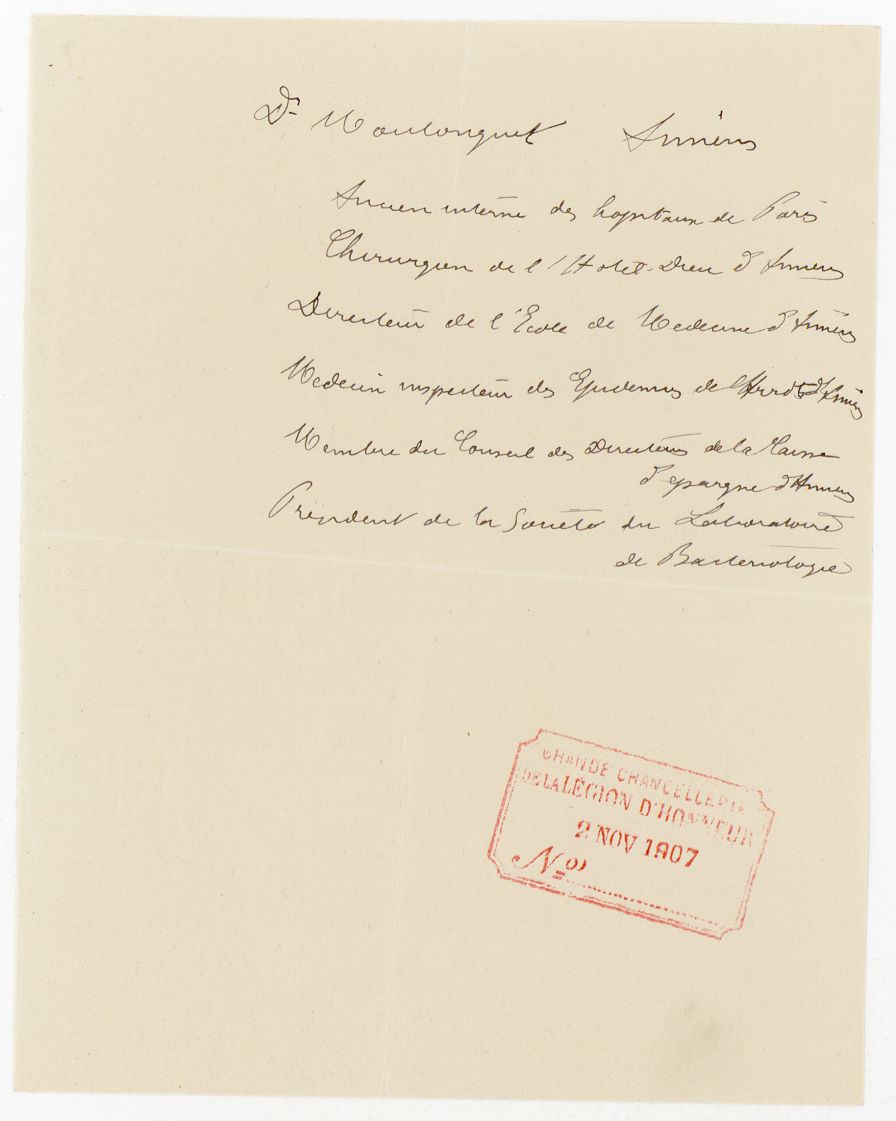 Dr Moulonguet Amiens
Ancien interne des hopitaux de Paris
Chirurgien de l'Hotel-Dieu d'Amiens
Directeur de l'Ecole de Medecine d'Amiens
Medecin inspecteur des Epidemies de l'Arrdt d'Amiens
Membre du Conseil des Directeurs de la Caisse
d'epargne d'Amiens
President de la Société du Laboratoire
de Bacteriologie
GRANDE CHANCELLERIE
DE LA LÉGION D'HONNEUR
2 NOV 1907
No